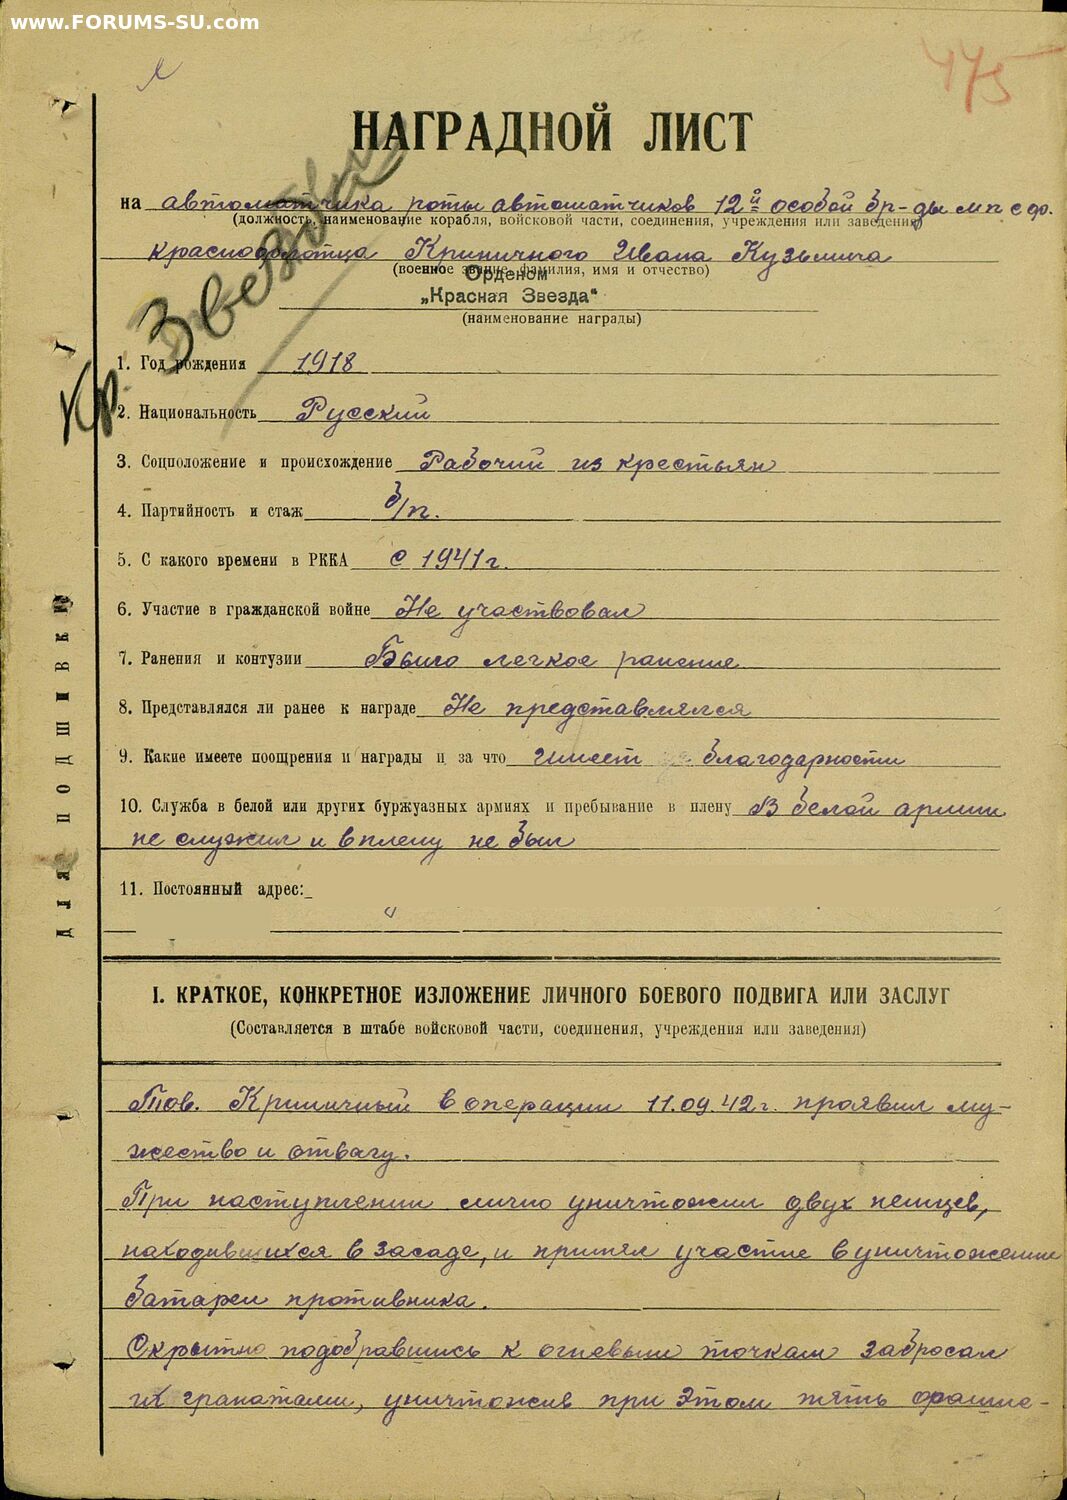 www.FORUMS-SU.com
475
НАГРАДНОЙ ЛИСТ
на автоматчика роты автоматчиков 12й особой бр-ды м п с ф.
(должность, наименование корабля, войсковой части, соединения, учреждения или заведения)
краснофлотца Криничного Ивана Кузьмича
(военное звание, фамилия, имя и отчество)
Орденом
„Красная Звезда"
(наименование награды)
Кр. Звезда
1. Год рождения 1918
2. Национальность Русский
3. Соцположение и происхождение Рабочий из крестьян
4. Партийность и стаж б/п.
5. С какого времени в РККА с 1941 г.
6. Участие в гражданской войне Не участвовал
7. Ранения и контузии Было легкое ранение
8. Представлялся ли ранее к награде Не представлялся
9. Какие имеете поощрения и награды и за что Имеет благодарности
10. Служба в белой или других буржуазных армиях и пребывание в плену В белой армии
не служил и в плену не был
11. Постоянный адрес:
ДЛЯ ПОДШИВКИ
I. КРАТКОЕ, КОНКРЕТНОЕ ИЗЛОЖЕНИЕ ЛИЧНОГО БОЕВОГО ПОДВИГА ИЛИ ЗАСЛУГ
(Составляется в штабе войсковой части, соединения, учреждения или заведения)
Тов. Криничный в операции 11.09.42 г. проявил му-
жество и отвагу.
При наступлении лично уничтожил двух немцев,
находившихся в засаде, и принял участие в уничтожении
батареи противника.
Скрытно подобравшись к огневым точкам забросал
их гранатами, уничтожив при этом пять фашис-